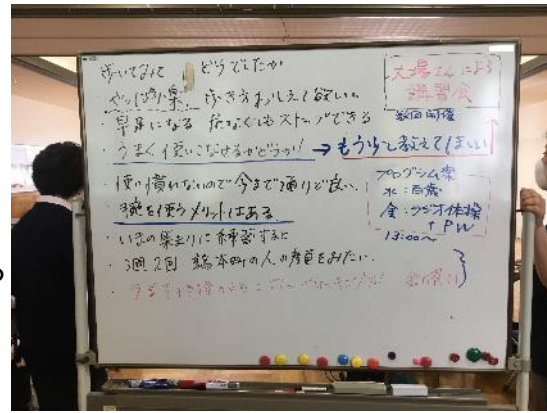 歩いてみて どうでしたか
・やっぱり楽。歩き方おしえて欲しい。
・早足になる 杖なくてもストップできる
・うまく使いこなせるかどうか! → もう少し教えてほしい
・使い慣れないので今まで通りで良い。
・腕を使うメリットはある。
・いきの集まりに練習すると
・週2回 の人の顔をみたい。
・ラジオ体操
大場さんによる
講習会
数回開催
プログラム案
水:百歳
金:ラジオ体操
+PW
13:00〜